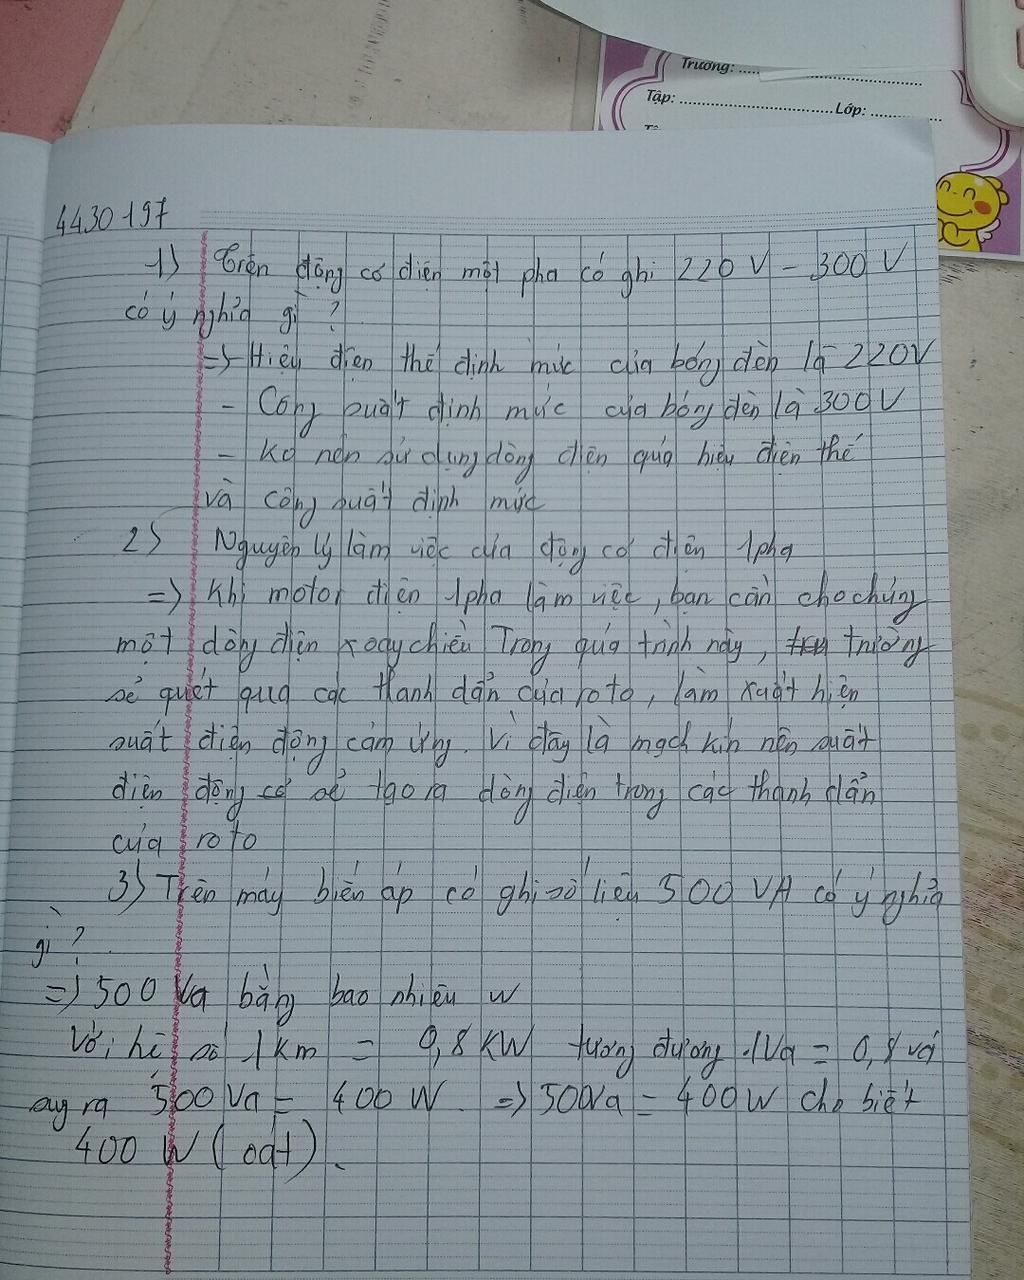 Trường: ..............................
Tập: ..............................Lớp: ..............
4430197
1) Trên động cơ điện một pha có ghi 220 V - 300 V
có ý nghĩa gì ?
=> Hiệu điện thế định mức của bóng đèn là 220V
- Công suất định mức của bóng đèn là 300 V
- Ko nên sử dụng dòng điện quá hiệu điện thế
và công suất định mức
2) Nguyên lý làm việc của động cơ điện 1pha
=> Khi motor điện 1pha làm việc, bạn cần cho chúng
một dòng điện xoay chiều Trong quá trình này, trường
sẻ quét qua các thanh dẩn của roto, làm xuất hiện
suất điện động cảm ứng. Vì đây là mạch kín nên suất
điện động cơ sẻ tạo ra dòng điện trong các thanh dẩn
của roto
3) Trên máy biến áp có ghi số liệu 500 VA có ý nghĩa
gì ?
=> 500 Va bằng bao nhiêu W
Với hệ số 1 Km = 0,8 KW tương đương 1Va = 0,8 vá
suy ra 500 Va = 400 W. => 500Va = 400 W cho biết
400 W ( oát ).